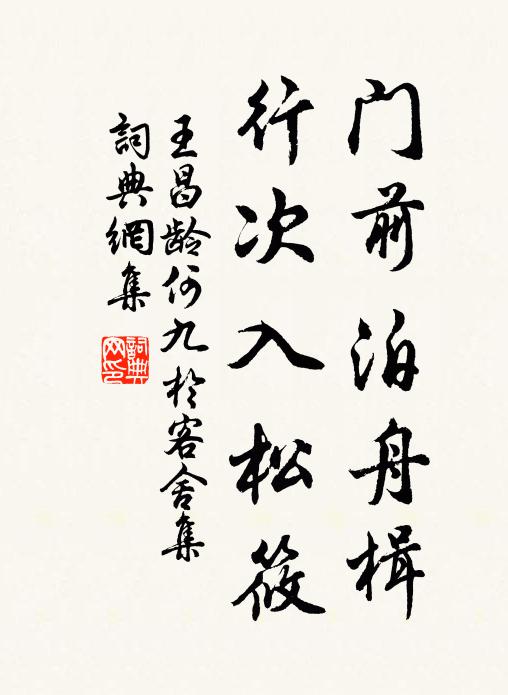 门前泊舟楫
行次入松筱
王昌龄何九於客舍集
詞典網集
詞典
网印